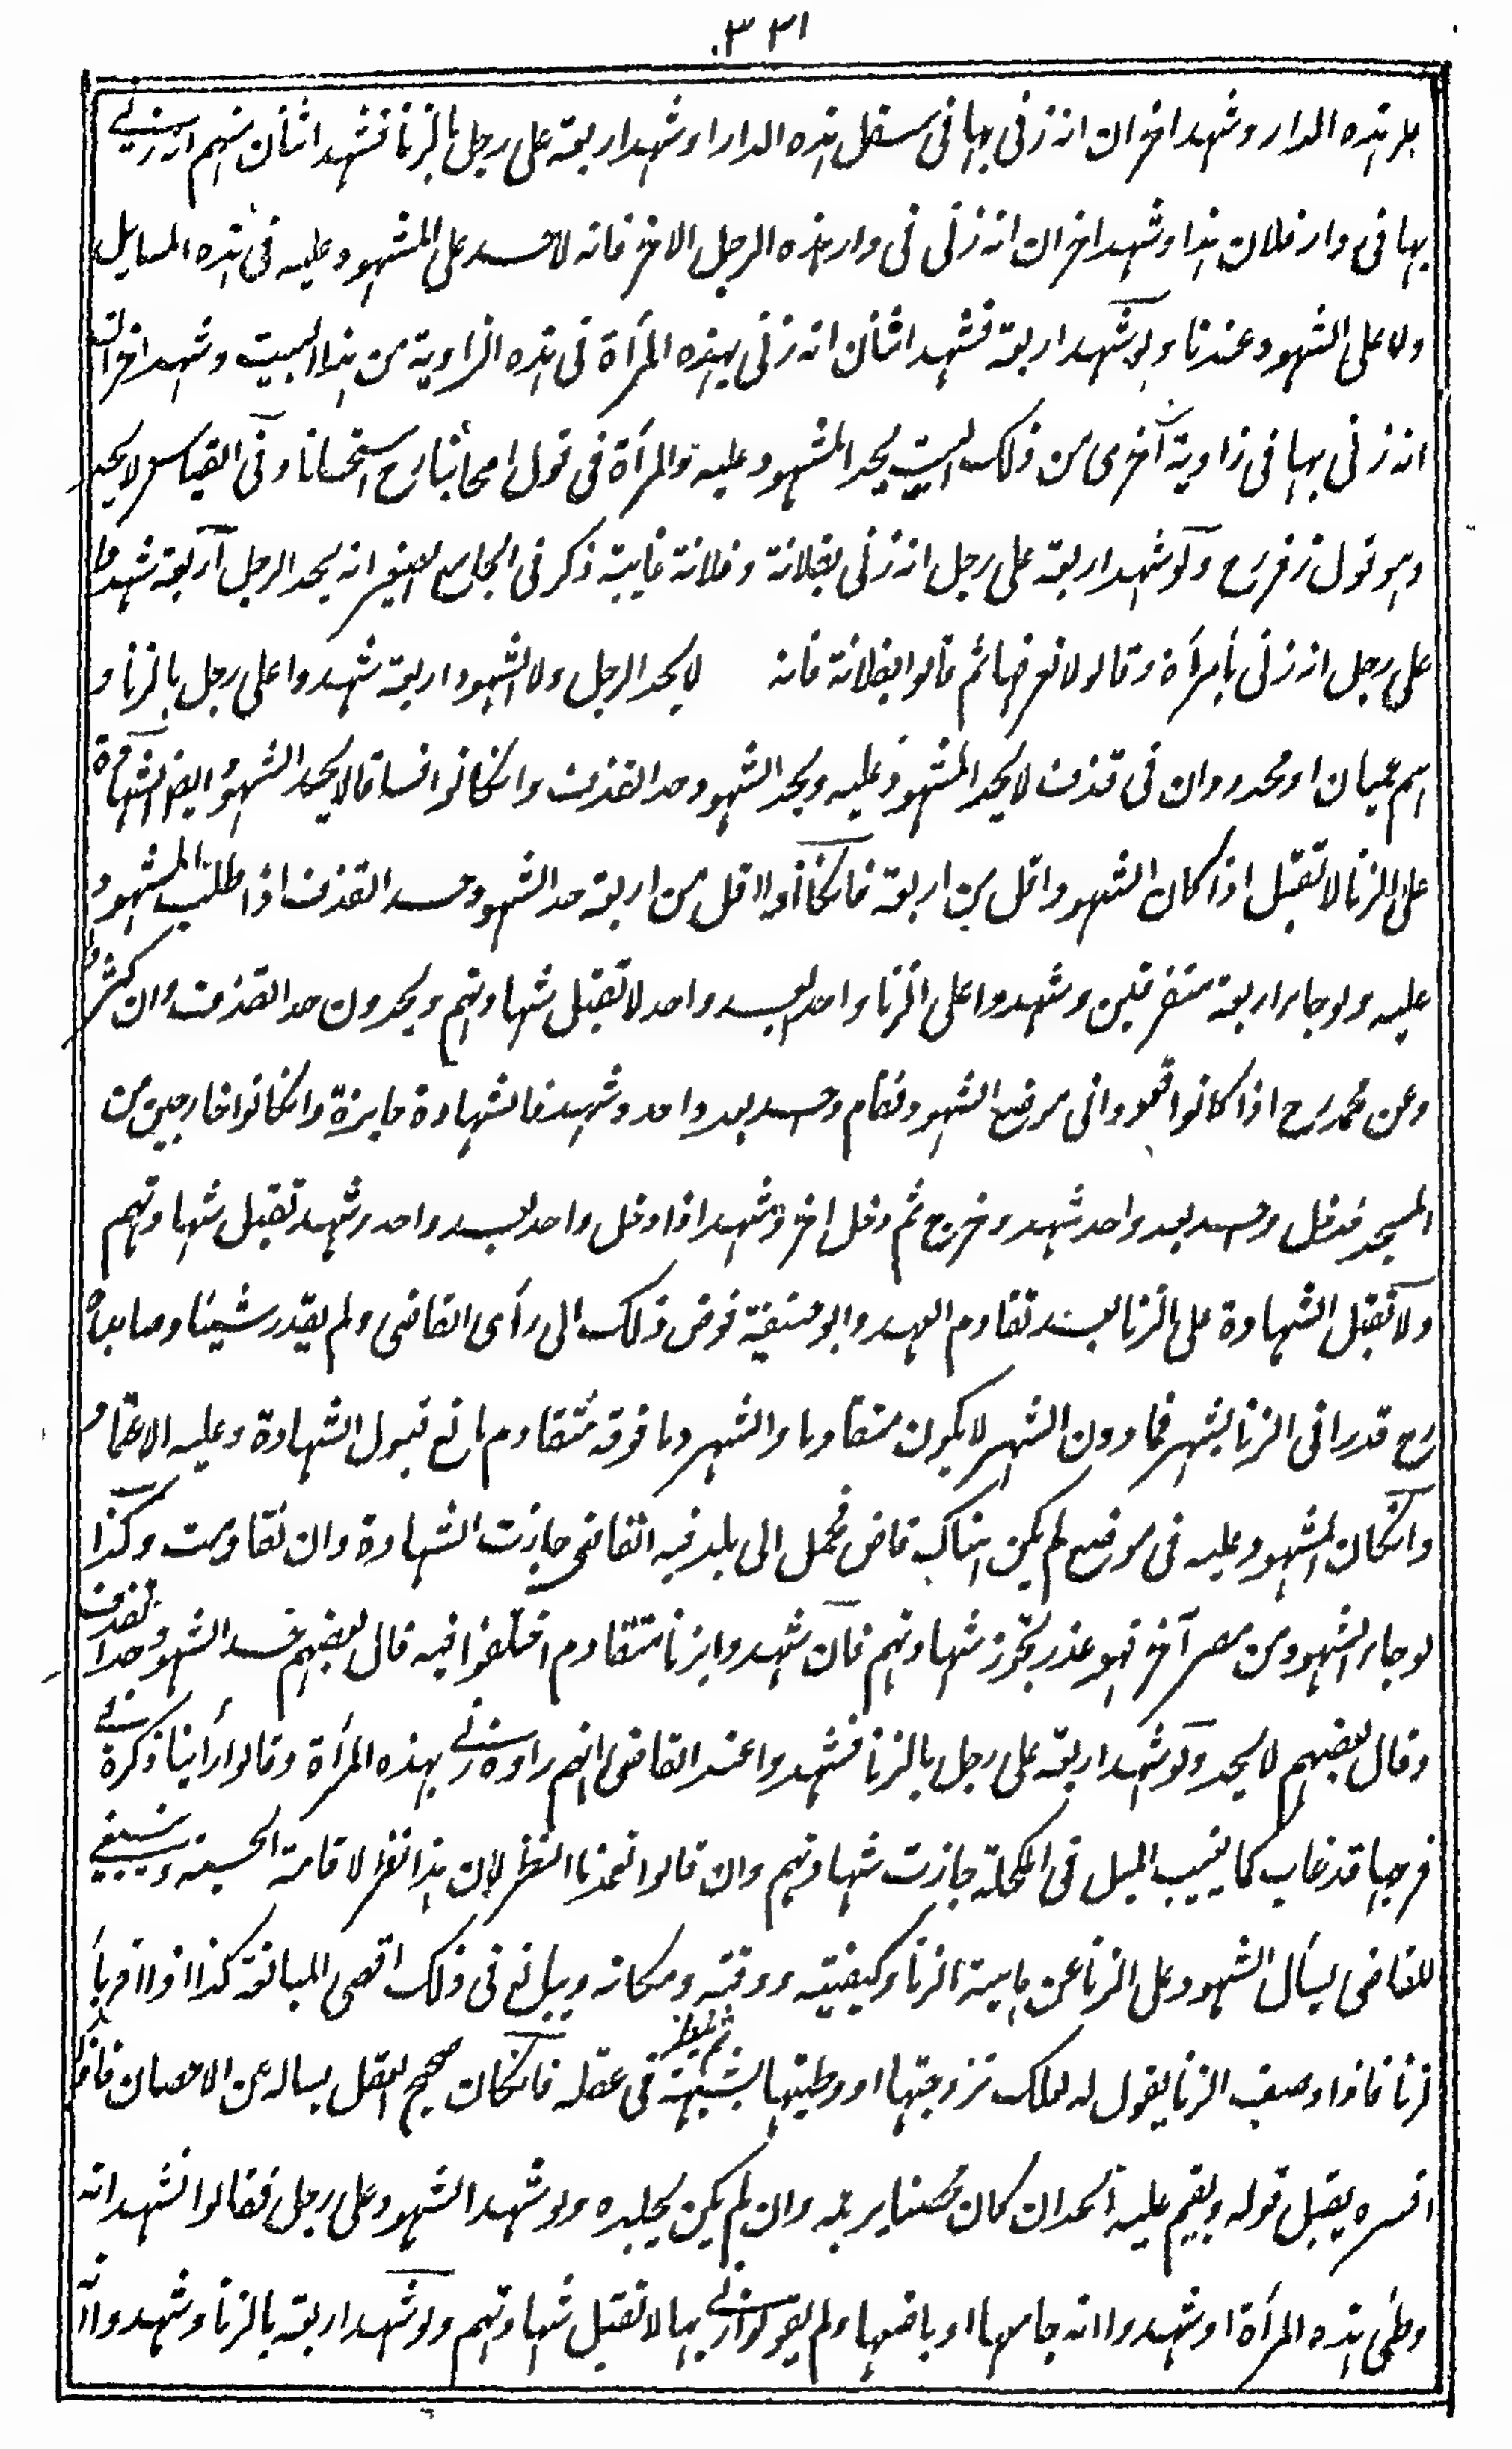 ٣٣١
هذه الدار وشهد اخران انه زنى بها فى سفل هذه الدار او شهد اربعة على رجل بالزنا فشهد اثنان منهم انه زنى
بها فى دار فلان هذا وشهد اخران انه زنى فى دار هذه الرجل الاخر فانه لا حد على المشهود عليه فى هذه المسايل
ولا على الشهود عندنا ولو شهد اربعة فشهد اثنان انه زنى بهذه المرأة فى هذه الزاوية من هذا البيت وشهد اخران
انه زنى بها فى زاوية آخرى من ذلك البيت يحد المشهود عليه والمرأة فى قول اصحابنا رح استحسانا وفى القياس لا يحد
وهو قول زفر رح ولو شهد اربعة على رجل انه زنى بفلانة وفلانة غايبة ذكر فى الجامع الصغير انه يحد الرجل اربعة شهدوا
على رجل انه زنى بامرأة وقالوا لا نعرفها ثم قالوا بفلانة فانه لا يحد الرجل ولا الشهود اربعة شهدوا على رجل بالزنا و
هم عميان او محدودان فى قذف لا يحد المشهود عليه ويحد الشهود حد القذف وانكانوا فساقا لا يحد الشهود ايضا الشهادة
على الزنا لا تقبل اذا كان الشهود اقل من اربعة فانكانوا اقل من اربعة حد الشهود حد القذف اذا طلب المشهود
عليه ولو جاء اربعة متفرقين وشهدوا على الزنا واحد بعد واحد لا تقبل شهادتهم ويحدون حد القذف وان كثروا
وعن محمد رح اذا كانوا قعودا فى موضع الشهود فقام وحد بعد واحد وشهد فالشهادة جايزة وانكانوا خارجين من
المسجد فدخل وحد بعد واحد شهد وخرج ثم دخل اخر وشهد اذا دخل واحد بعد واحد وشهد تقبل شهادتهم
ولا تقبل الشهادة على الزنا بعد تقادم العهد وابو حنيفة فوض ذلك الى رأى القاضى ولم يقدر شيئا وصاحباه
رح قدرا فى الزنا بشهر فما دون الشهر لا يكون متقادما والشهر وما فوقه متقادم مانع قبول الشهادة وعليه الاعتماد
وانكان المشهود عليه فى موضع لم يكن هناك قاض فحمل الى بلد فيه القاضى جازت الشهادة وان تقادمت وكذا
لو جاء الشهود من مصر آخر فهو عذر يجوز شهادتهم فان شهدوا بزنا متقادم اختلفوا فيه قال بعضهم حد الشهود حد القذف
وقال بعضهم لا يحد ولو شهد اربعة على رجل بالزنا فشهدوا عند القاضى انهم راوه زنى بهذه المرأة وقالوا رأينا ذكره فى
فرجها قد غاب كما يغيب الميل فى المكحلة جازت شهادتهم وان قالوا تعمدنا النظر لان هذا نظر لاقامة الحسبة وينبغى
للقاضى يسأل الشهود على الزنا عن ماهية الزنا وكيفيته ووقته ومكانه ويبالغ فى ذلك اقصى المبالغة كذا اذا اقر بأ
لزنا فاذا وصف الزنا يقول له لعلك تزوجتها او وطيتها بشبهة ثم ينظر فى عقله فانكان صحيح العقل يساله عن الاحصان فاذا
افسره يقبل قوله ويقيم عليه الحد ان كان محصنا يرجمه وان لم يكن يجلده ولو شهد الشهود على رجل فقالوا نشهد انه
وطئ هذه المرأة او شهدوا انه جامعها او باضعها ولم يقولوا زنى بها لا تقبل شهادتهم ولو شهد اربعة بالزنا وشهدوا انه